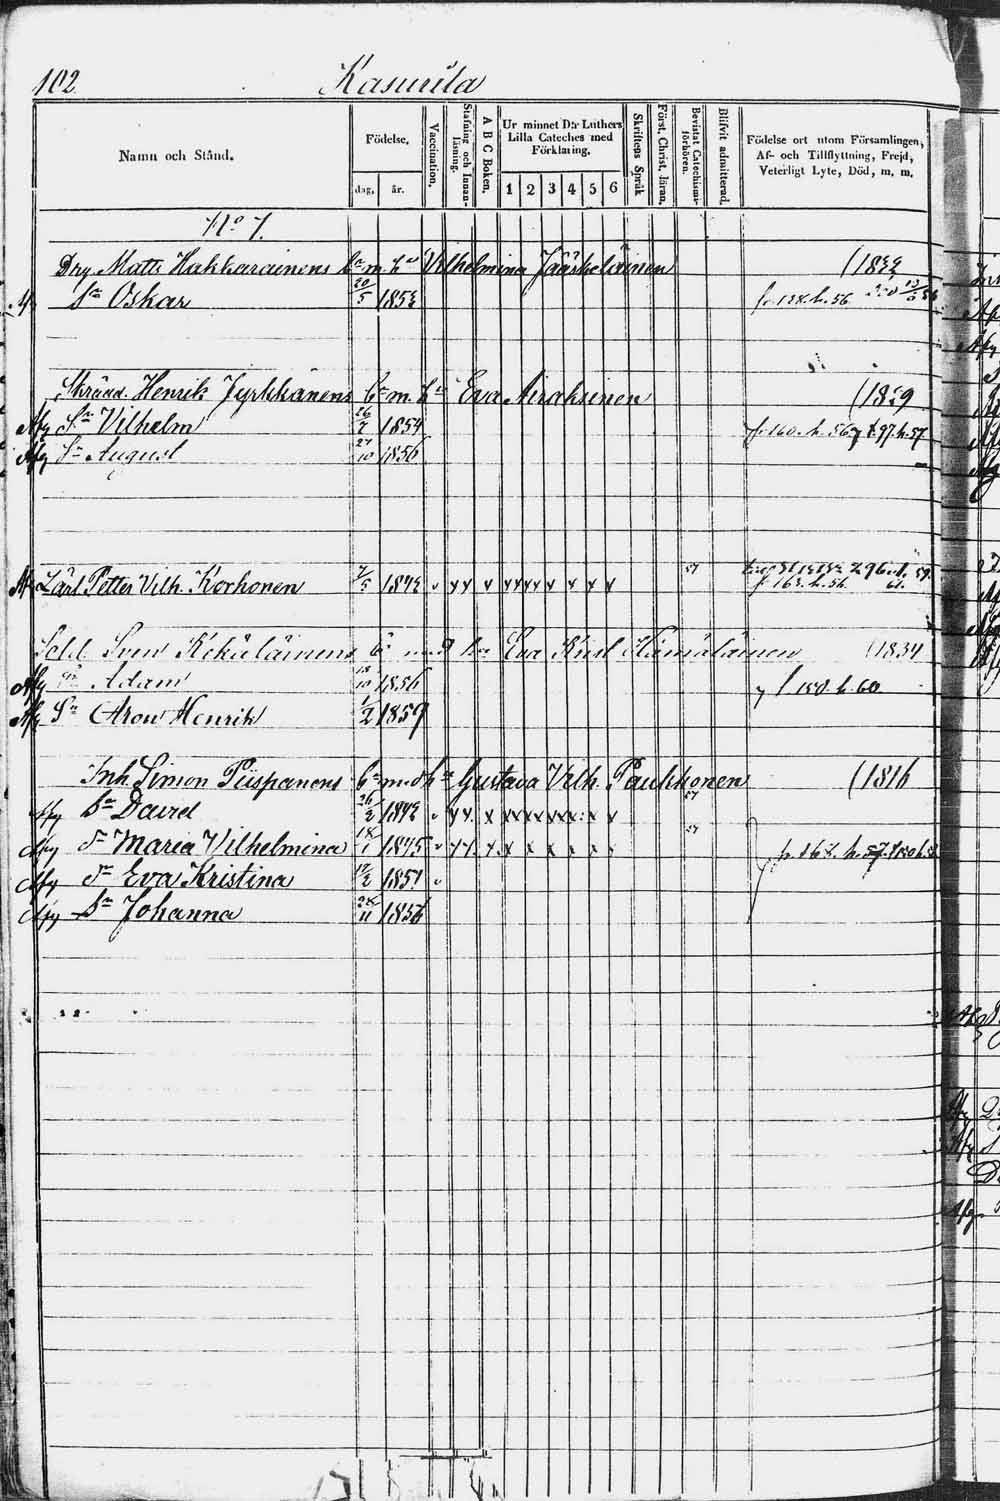 102.
Kasurila
Namn och Stånd.
Födelse.
dag, år.
Vaccination.
Stafning och Innan-läsning.
A B C Boken.
Ur minnet D:r Luthers Lilla Cateches med Förklaring.
1 2 3 4 5 6
Skriftens Språk
Först. Christ. läran.
Bevistat Catechismi-förhören.
Blifvit admitterad.
Födelse ort utom Församlingen, Af- och Tillflyttning, Frejd, Veterligt Lyte, Död, m. m.
N:o 7.
Dry. Matts Hakkarainens b:n m. h:u Vilhelmina Jääskeläinen
S:n Oskar 20/5 f. 138. h. 56
Henrik Jyrkkänens b:n m. h:u Eva Airaksinen (1829
Afg S:n Vilhelm 26/7 1854 f. 160. h. 56 t. 97. h. 57
Afg S:n August 27/10 1856
Afg Lärl Petter Vilh. Korhonen 7/5 1843 v xx x xxxx x x x 57 f. 163. h. 56
Sold. Sven Kekäläinens b:n med h:u Eva Krist Hämäläinen (1834
Afg S:n Adam 18/10 1856 f 150. h. 60
Afg S:n Aron Henrik 1/2 1859
Inh. Simon Piispanens b:n med h:u Gustava Vilh. Paukkonen (1816
Afg S:n David 26/2 1842 v xx. x xxxxxx x x 57
Afg D:r Maria Vilhelmina 18/1 1845 v x x. x. x x x x x . 57
Afg D:r Eva Kristina 17/2 1851 v
Afg D:r Johanna 28/11 1856